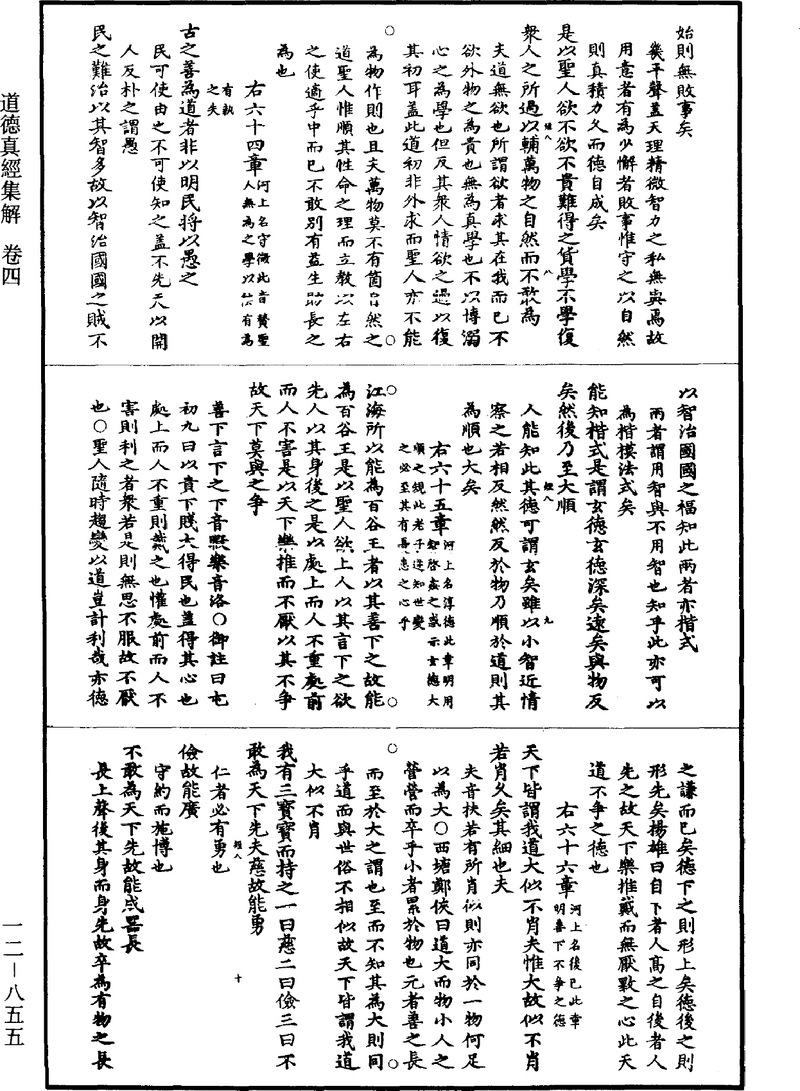 道德真經集解　卷四
始則無敗事矣
幾平聲蓋天理精微智力之私無與焉故
用意者有為少懈者敗事惟守之以自然
則真積力久而德自成矣
是以聖人欲不欲不貴難得之貨學不學復
衆人之所過以輔萬物之自然而不敢為
夫道無欲也所謂欲者求其在我而已不
欲外物之為貴也無為真學也不以博溺
心之為學也但反其衆人情欲之過以復
其初耳蓋此道初非外求而聖人亦不能
為物作則也且夫萬物莫不有箇自然之
道聖人惟順其性命之理而立教以左右
之使適乎中而已不敢別有益生助長之
為也
右六十四章河上名守微此音贊聖
人無為之學以戒有為
有執
之失
古之善為道者非以明民將以愚之
民可使由之不可使知之蓋不先天以開
人反朴之謂愚
民之難治以其智多故以智治國國之賊不
以智治國國之福知此兩者亦楷式
兩者謂用智與不用智也知乎此亦可以
為楷模法式矣
能知楷式是謂玄德玄德深矣遠矣與物反
矣然後乃至大順
人能知此其德可謂玄矣雖以小智近情
察之若相反然然反於物乃順於道則其
為順也大矣
右六十五章河上名淳德此章明用
智啓姦之戒示玄德大
順之規此老子逆知世變
之必至其有憂患之心乎
江海所以能為百谷王者以其善下之故能
為百谷王是以聖人欲上人以其言下之欲
先人以其身後之是以處上而人不重處前
而人不害是以天下樂推而不厭以其不爭
故天下莫與之爭
善下言下之下音暇樂音洛○御註曰屯
初九曰以貴下賤大得民也蓋得其心也
處上而人不重則戴之也懽處前而人不
害則利之者衆若是則無思不服故不厭
也○聖人隨時趨變以道豈計利哉亦德
之謙而已矣德下之則形上矣德後之則
形先矣揚雄曰自下者人高之自後者人
先之故天下樂推戴而無厭斁之心此天
道不爭之德也
右六十六章河上名後已此章
明善下不爭之德
天下皆謂我道大似不肖夫惟大故似不肖
若肖久矣其細也夫
夫音扶若有所肖似則亦同於一物何足
以為大○西塘鄭俠曰道大而物小人之
管營而卒乎小者累於物也元者善之長
而至於大之謂也至而不知其為大則同
乎道而與世俗不相似故天下皆謂我道
大似不肖
我有三寶寶而持之一曰慈二曰儉三曰不
敢為天下先夫慈故能勇
仁者必有勇也
儉故能廣
守約而施博也
不敢為天下先故能成器長
長上聲後其身而身先故卒為有物之長
一二—八五五